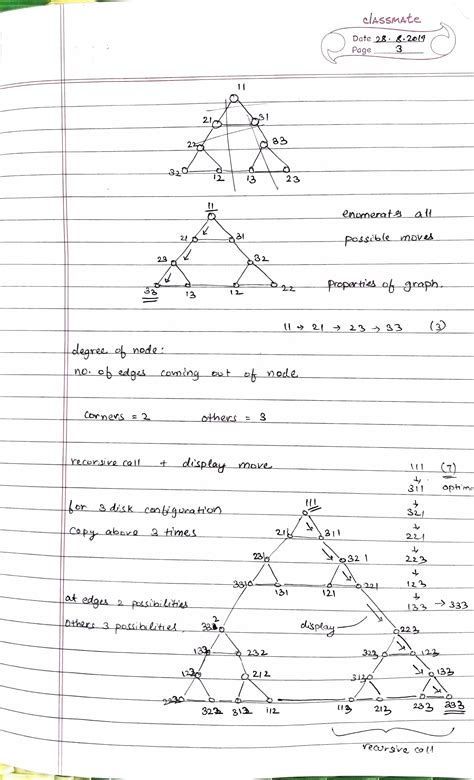 classmate
Date 28.8.2019
Page 3
11
21 31
22 33
32 12 13 23
11
21 31
23 32
33 13 12 22
enumerates all
possible moves
properties of graph.
11 → 21 → 23 → 33 (3)
degree of node:
no. of edges coming out of node
corners = 2 others = 3
recursive call + display move
for 3 disk configuration
copy above 3 times
at edges 2 possibilities
others 3 possibilities.
111 (7)
↓
311 optim
↓
321
↓
221
↓
223
↓
123
↓
133 → 333
111
211 311
231 321
331 131 121 221
display
332 223
132 232 323 123
212 313 133
322 312 112 113 213 233 333
recursive call